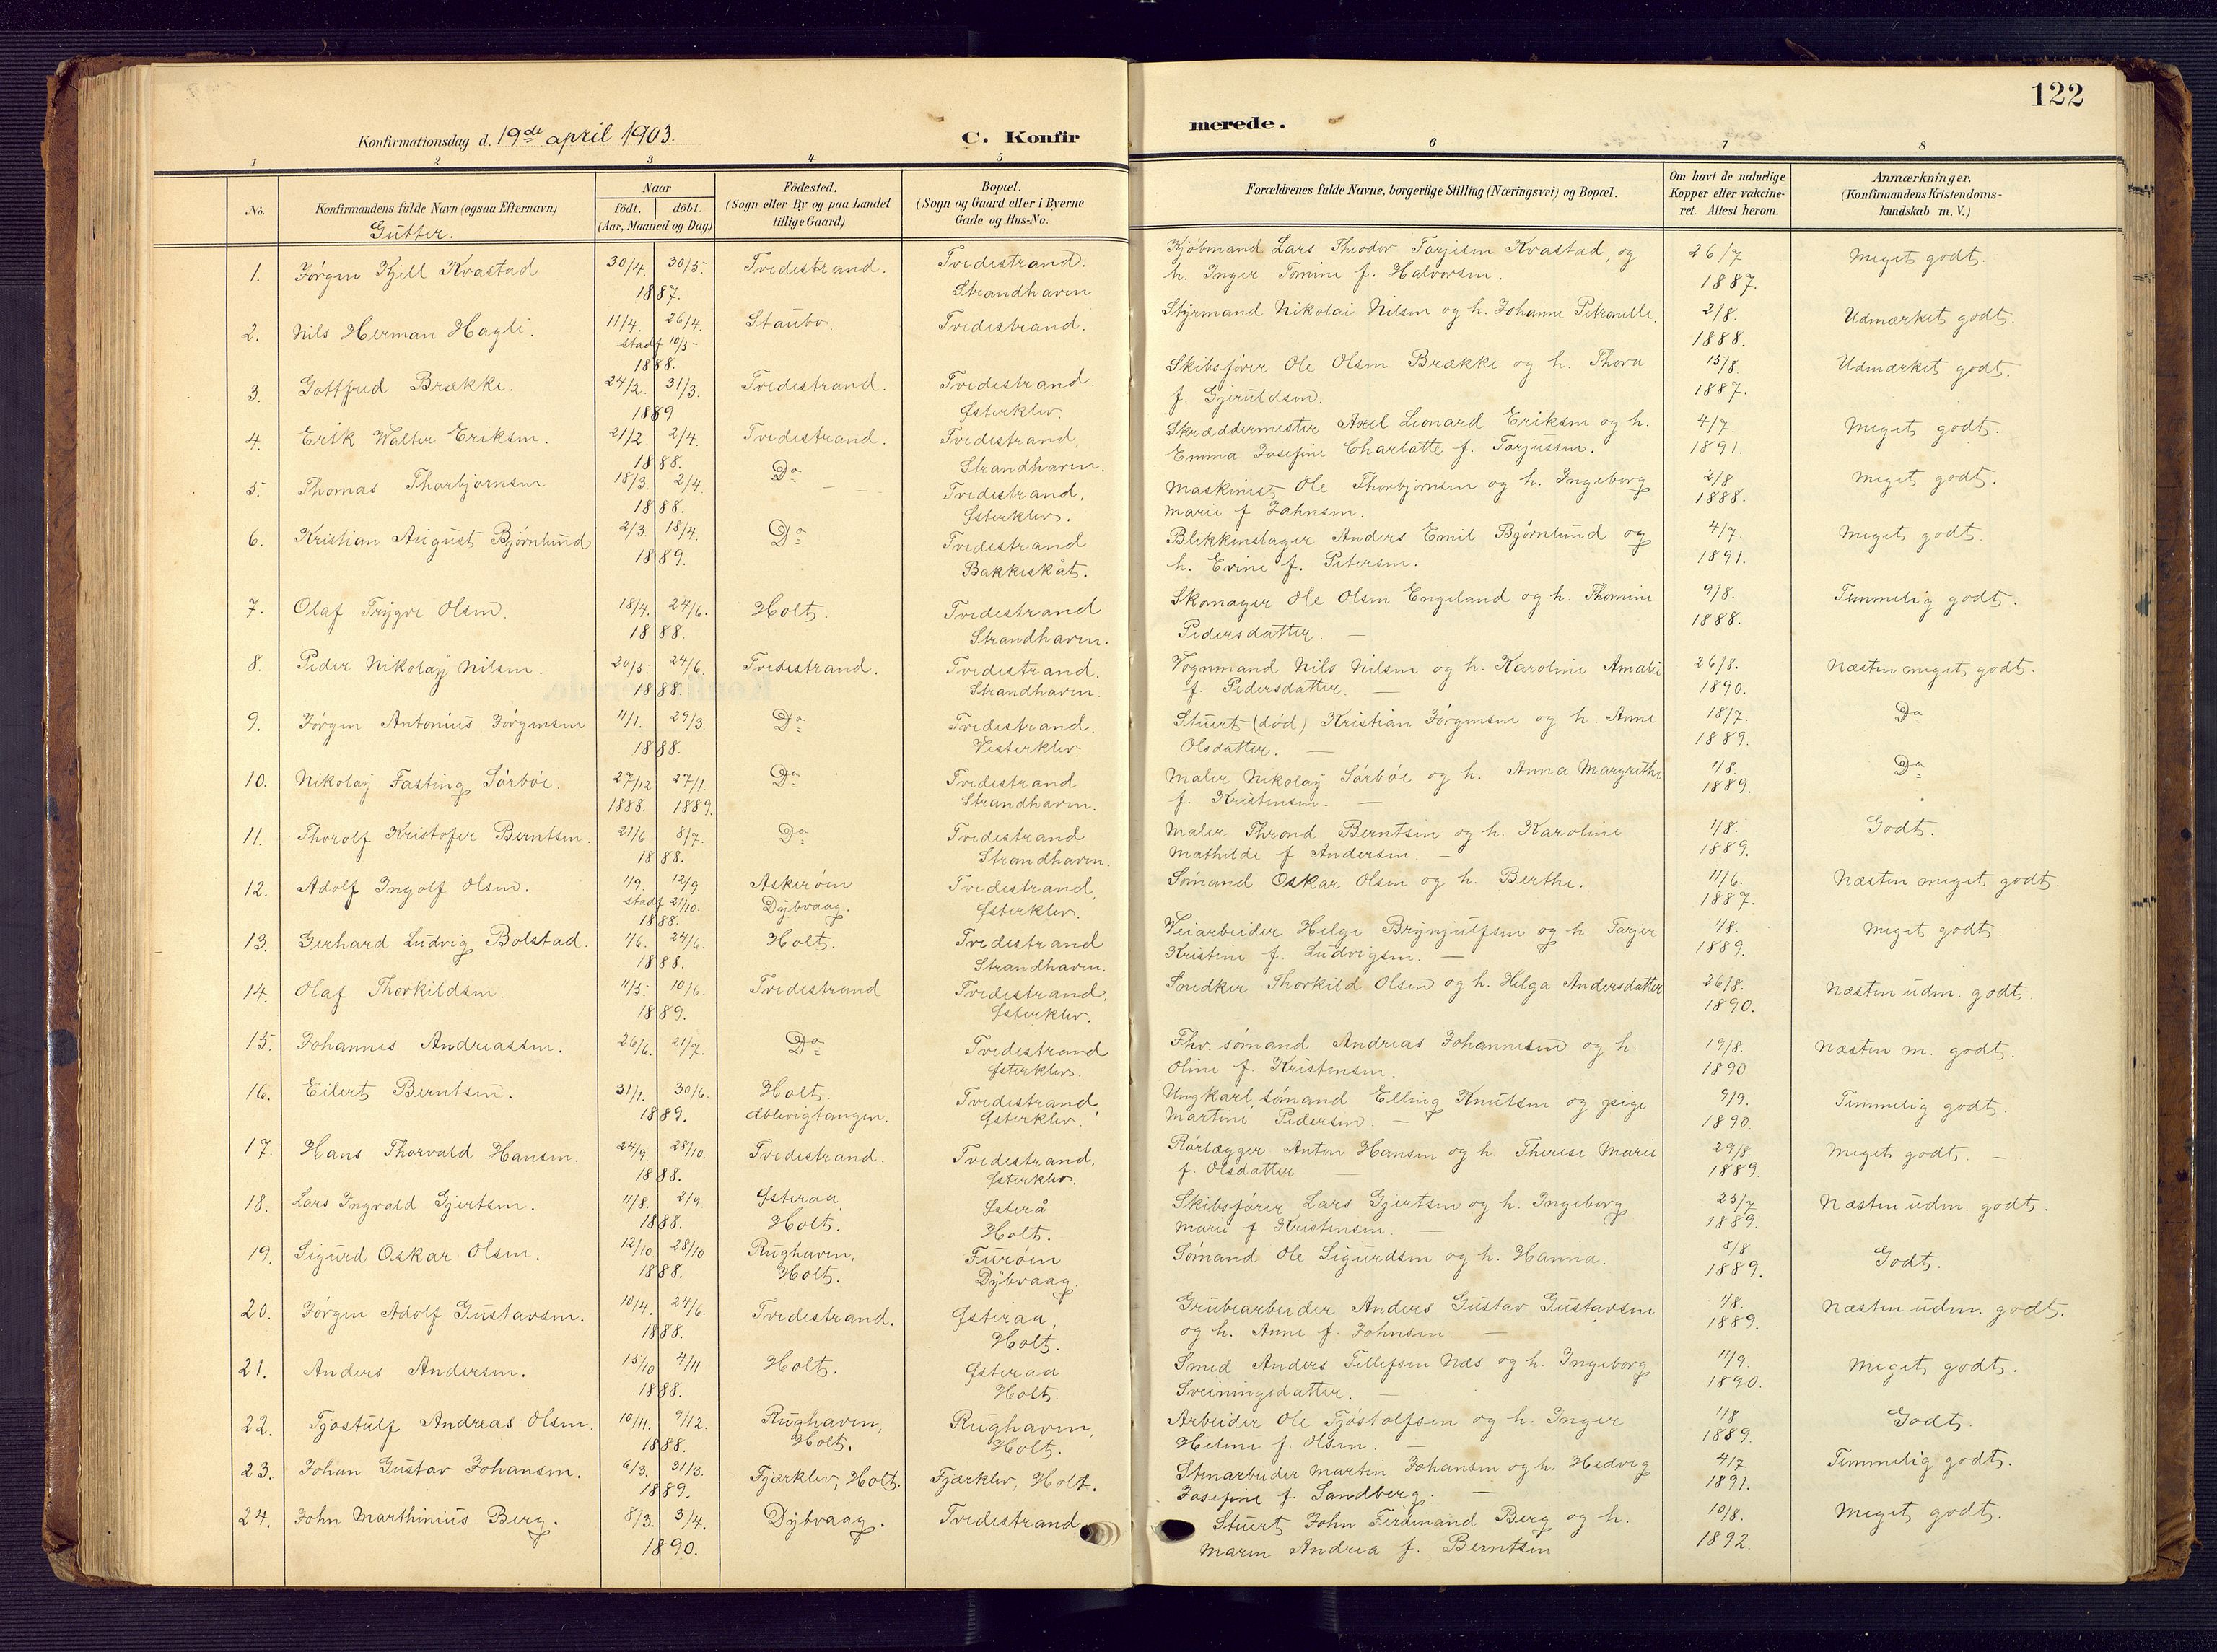 122
Konfirmationsdag d. 19de april 1903.
C. Konfirmerede.
1 2 3 4 5 6 7 8
No.
Konfirmandens fulde Navn (ogsaa Efternavn)
Gutter.
Naar
født. døbt.
(Aar, Maaned og Dag)
Fødested.
(Sogn eller By og paa Landet
tillige Gaard)
Bopæl.
(Sogn og Gaard eller i Byerne
Gade og Hus-No.
Forældrenes fulde Navne, borgerlige Stilling (Næringsvei) og Bopæl.
Om havt de naturlige
Kopper eller vakcine-
ret. Attest herom.
Anmærkninger,
(Konfirmandens Kristendoms-
kundskab m. V.)
1. Jørgen Kjell Kvastad 30/4. 30/5. Tvedestrand. Tvedestrand. Kjøbmand Lars Theodor Tarjisen Kvastad, og 26/7 Meget godt.
1887. Strandhaven h. Inger Tomine f. Halvorsen. 1887.
2. Nils Herman Hagli. 11/4. 26/4. Staubo. Tvedestrand. Styrmand Nikolai Nilsen og h. Johanne Petronelle. 2/8. Udmærket godt.
stadf 10/5-
1888. 1888.
3. Gottfred Brække. 24/2. 31/3. Tvedestrand. Tvedestrand. Skibsfører Ole Olsen Brække og h. Thora 15/8. Udmærket godt.
1889 Østerklev. f. Gjeruldsen. 1887.
4. Erik Walter Eriksen. 21/2. 2/4. Tvedestrand. Tvedestrand, Skræddermester Axel Leonard Eriksen og h. 4/7. Meget godt.
1888. Strandhaven. Emma Josefine Charlotte f. Torjussen. 1891.
5. Thomas Thorbjørnsen 18/3. 2/4. Do Tvedestrand, Maskinist Ole Thorbjørnsen og h. Ingeborg 2/8 Meget godt.
1888. Østerklev. Marie f. Jahnsen. 1888.
6. Kristian August Bjørnlund 2/3. 18/4. Do Tvedestrand Blikkenslager Anders Emil Bjørnlund og 4/7. Meget godt.
1889. Bakkeskåt. h. Evine f. Petersen. 1891.
7. Olaf Trygve Olsen. 18/4. 24/6. Holt. Tvedestrand Skomager Ole Olsen Engeland og h. Thomine 9/8. Temmelig godt.
1888. Strandhaven. Pedersdatter. 1888.
8. Peder Nikolay Nilsen. 20/5. 24/6. Tvedestrand. Tvedestrand. Vognmand Nils Nilsen og h. Karoline Amalie 26/8. Næsten meget godt.
1888. Strandhaven. f. Pedersdatter. 1890.
9. Jørgen Antonius Jørgensen 11/1. 29/3 Do Tvedestrand. Stuert (død) Kristian Jørgensen og h. Anne 18/7. Do
1888. Vesterklev. Olsdatter. 1889.
10. Nikolay Fasting Sørbøe. 27/12 27/1. Do Tvedestrand Maler Nikolay Sørbøe og h. Anna Margrethe 1/8. Do
1888. 1889. Strandhaven. f. Kristensen. 1889.
11. Thorolf Kristofer Berntsen. 21/6. 8/7. Do Tvedestrand Maler Thrond Berntsen og h. Karoline 1/8. Godt.
1888. Strandhaven. Mathilde f Andersen. 1889.
12. Adolf Ingolf Olsen. 1/9. 12/9 Askerøen Tvedestrand, Sømand Oskar Olsen og h. Berthe. 11/6. Næsten meget godt.
stadf 21/10. Dybvaag. Østerklev. 1887.
1888.
13. Gerhard Ludvig Bolstad. 1/6. 24/6. Holt. Tvedestrand Veiarbeider Helge Brynjulfsen og h. Tarjer 1/8. Meget godt.
1888. Strandhaven. Kristine f. Ludvigsen. 1889.
14. Olaf Thorkildsen. 11/5- 10/6. Tvedestrand Tvedestrand, Snedker Thorkild Olsen og h. Helga Andersdatter 26/8. Næsten udm. godt.
1889. Østerklev. 1890.
15. Johannes Andreassen. 26/6. 21/7. Do Tvedestrand Fhv. sømand Andreas Johannesen og h. 19/8. Næsten m. godt.
Østerklev. Oline f. Kristensen. 1890
16. Eilert Berntsen. 31/1. 30/6. Holt. Tvedestrand, Ungkarl sømand Elling Knutsen og pige 9/9. Temmelig godt.
1889. Østerklev. Martine Pedersen. 1890.
17. Hans Thorvald Hansen. 24/9. 28/10. Tvedestrand. Tvedestrand, Rørlægger Anton Hansen og h. Therese Marie 29/8. Meget godt.
1888. Østerklev. f. Olsdatter 1889.
18. Lars Ingvald Gjertsen. 11/8. 2/9. Østeraa, Østerå Skibsfører Lars Gjertsen og h. Ingeborg 25/7 Næsten udm. godt.
1888. Holt. Holt. Marie f. Kristensen. 1889.
19. Sigurd Oskar Olsen. 12/10. 28/10 Rughaven, Furøen Sømand Ole Sigurdsen og h. Hanna. 8/8 Godt.
1888. Holt. Dybvaag. 1889.
20. Jørgen Adolf Gustavsen. 10/4. 24/6. Tvedestrand. Østeraa, Grubearbeider Anders Gustav Gustavsen 1/8. Næsten udm. godt.
1888. Holt. og h. Anne f. Johnsen. 1889.
21. Anders Andersen. 15/10 4/11 Holt. Østeraa Smed Anders Tellefsen Næs og h. Ingeborg 11/9. Meget godt.
1888. Holt. Sveiningsdatter. 1890.
22. Tjøstulf Andreas Olsen. 10/11. 9/12. Rughaven, Rughaven, Arbeider Ole Tjøstolfsen og h. Inger 1/8 Godt.
1888. Holt. Holt. Helene f. Olsen. 1889.
23. Johan Gustav Johansen. 6/3. 31/3. Fjærklev, Holt. Fjærklev, Holt. Stenarbeider Martin Johansen og h. Hedvig 4/7 Temmelig godt.
1889. Josefine f. Sandberg. 1891.
24. John Marthinius Berg. 8/3. 3/4. Dybvaag. Tvedestrand Stuert John Ferdinand Berg og h. 10/8. Meget godt.
1890. Maren Andrea f. Berntsen 1892.